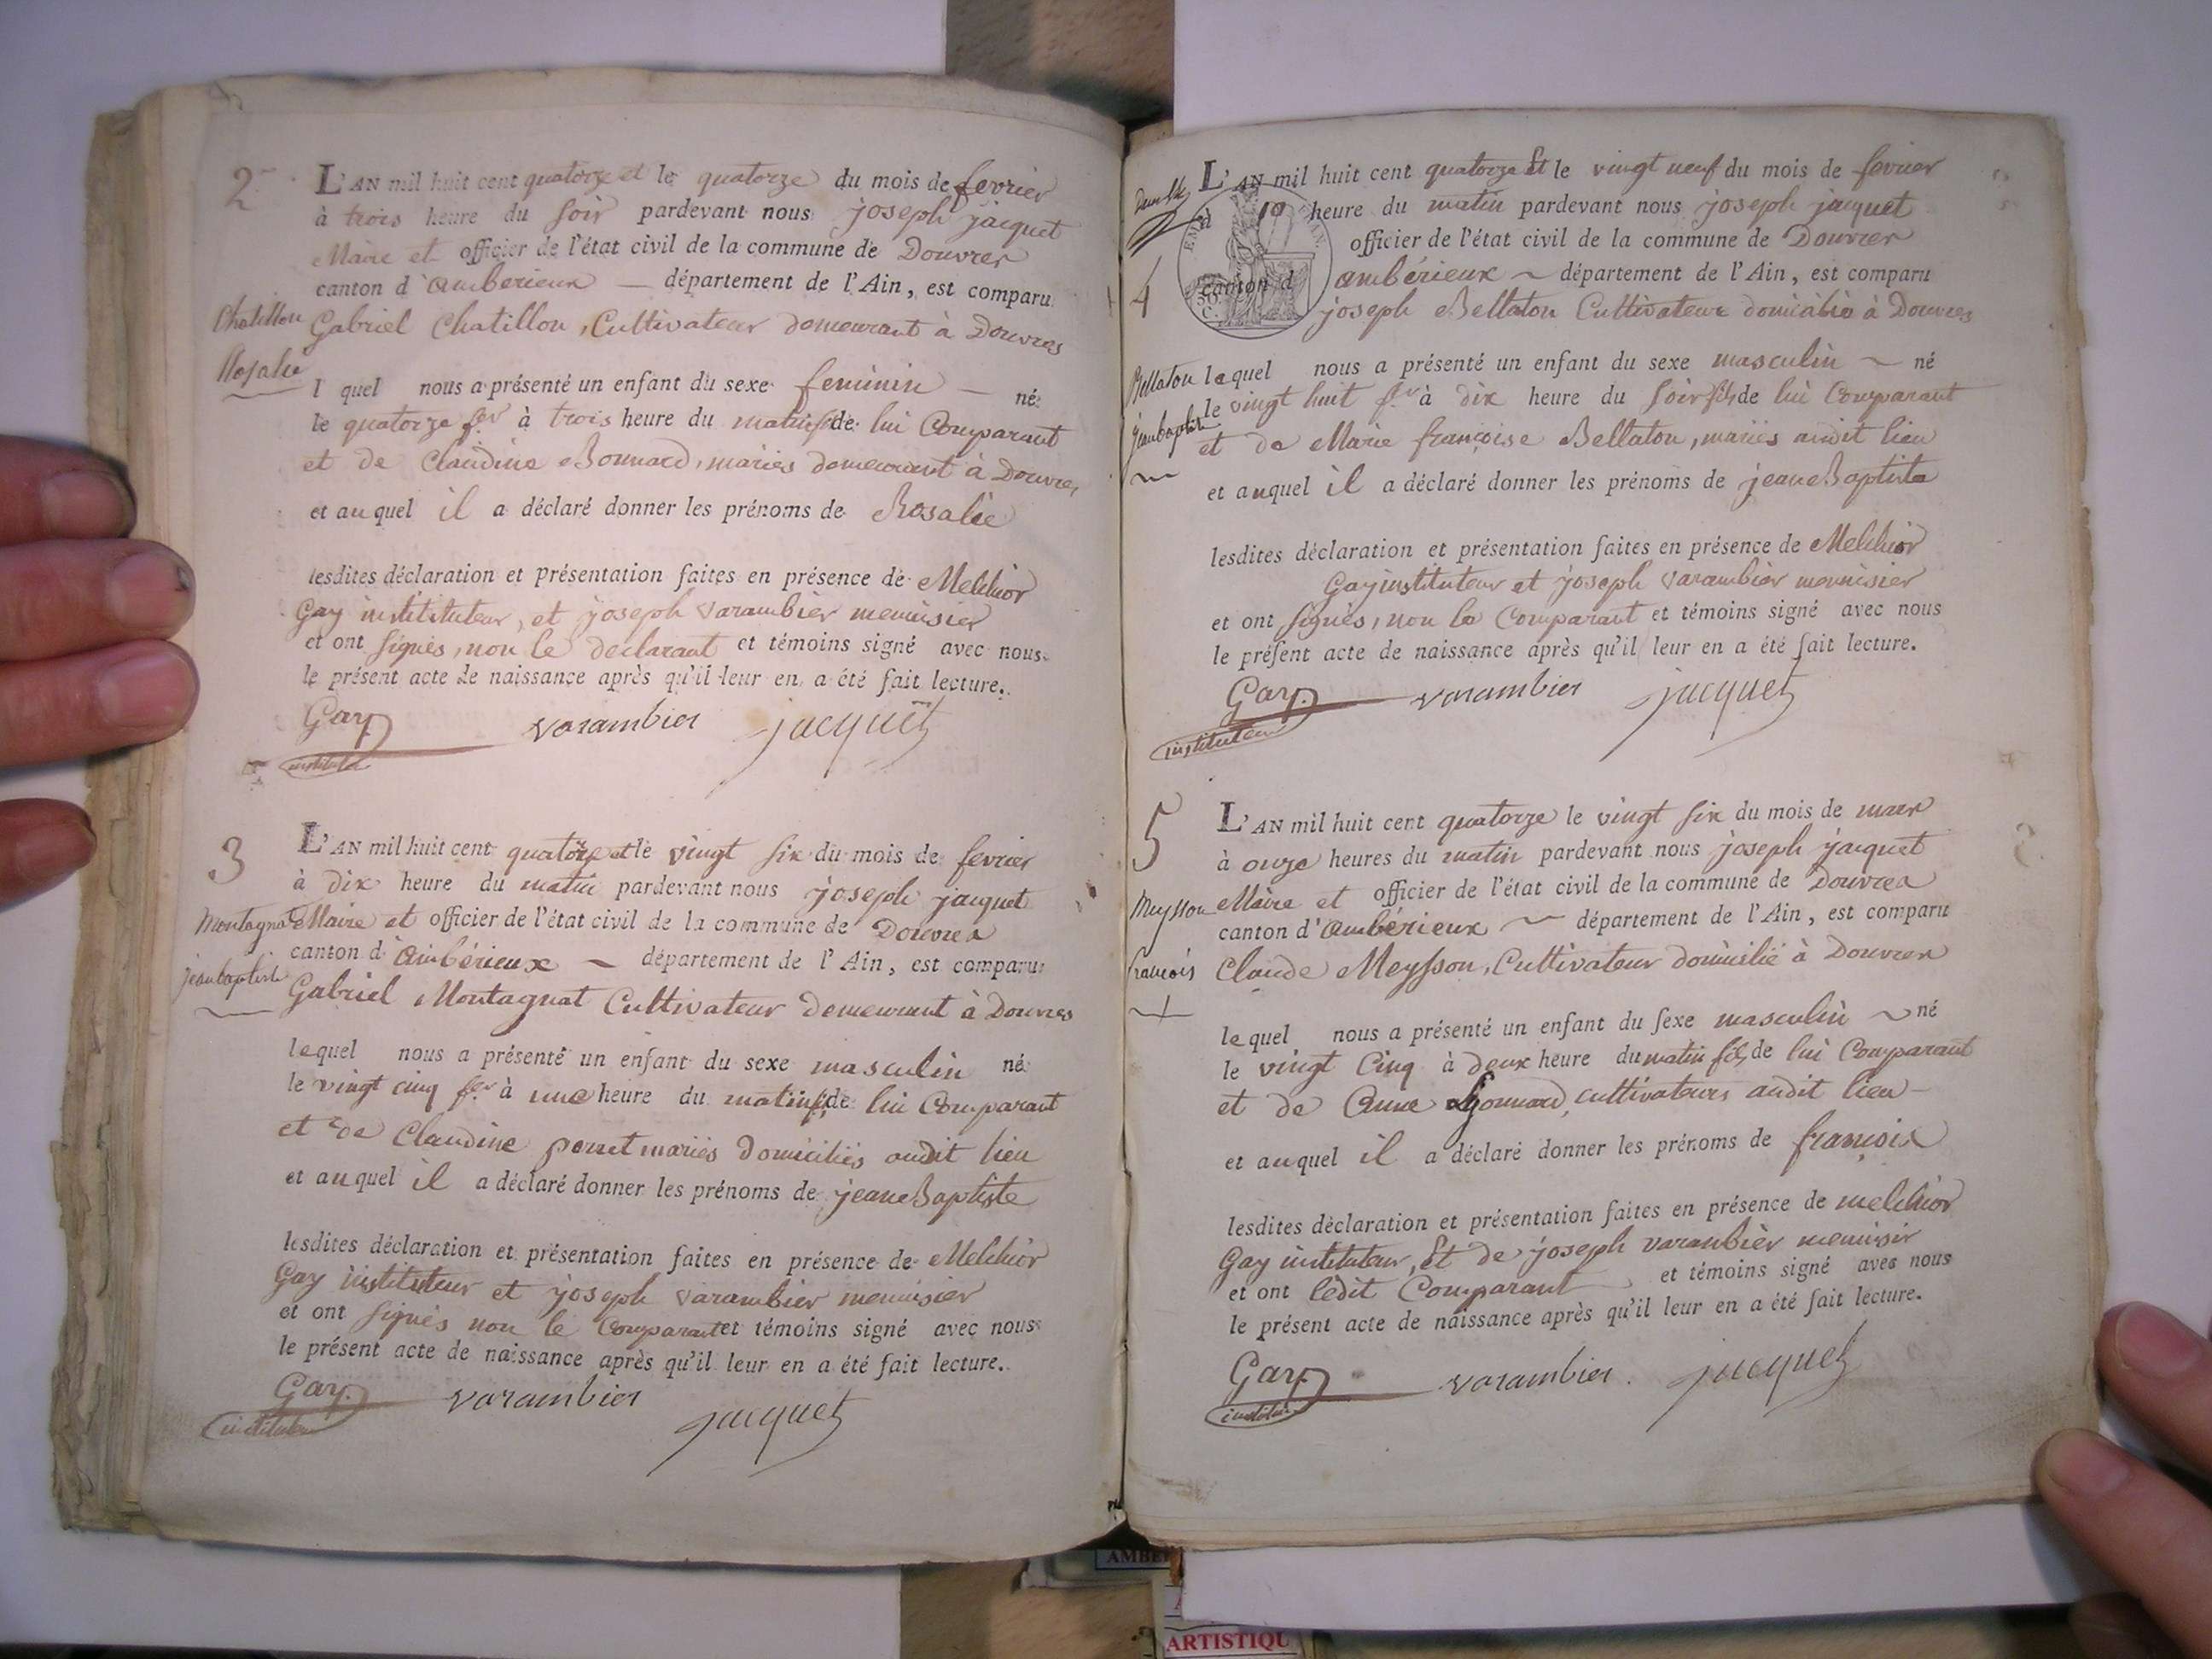 2
L'AN mil huit cent quatorze et le quatorze du mois de fevrier
à trois heure du soir pardevant nous joseph jacquet
Maire et officier de l'état civil de la commune de Douvres
canton d'ambérieux — département de l'Ain, est comparu
Chatillon
Gabriel Chatillon, Cultivateur demeurant à Douvres
Rosalie
l quel nous a présenté un enfant du sexe feminin — né
le quatorze fer à trois heure du matin f de lui Comparant
et de Claudine Bonnard, mariés demeurant à Douvres
et auquel il a déclaré donner les prénoms de Rosalie
lesdites déclaration et présentation faites en présence de Melchior
Gay instituteur, et joseph varambier menuisier
et ont signés, non le declarant et témoins signé avec nous
le présent acte de naissance après qu'il leur en a été fait lecture.
Gay varambier jacquet
instituteur
3
L'AN mil huit cent quatorze et le vingt six du mois de fevrier
à dix heure du matin pardevant nous joseph jacquet
Montagnat
Maire et officier de l'état civil de la commune de Douvres
canton d'ambérieux ~ département de l'Ain, est comparu
jeanbaptiste
Gabriel Montagnat Cultivateur demeurant à Douvres
lequel nous a présenté un enfant du sexe masculin né
le vingt cinq fer à une heure du matin fs de lui Comparant
et de Claudine perret mariés domiciliés audit lieu
et auquel il a déclaré donner les prénoms de jeanBaptiste
lesdites déclaration et présentation faites en présence de Melchior
Gay instituteur et joseph varambier menuisier
et ont signés non le Comparant et témoins signé avec nous
le présent acte de naissance après qu'il leur en a été fait lecture.
Gay varambier jacquet
instituteur
L'AN mil huit cent quatorze Et le vingt neuf du mois de fevrier
à 10 heure du matin pardevant nous joseph jacquet
officier de l'état civil de la commune de Douvres
4
canton d'ambérieux ~ département de l'Ain, est comparu
50 C.
joseph Bellaton Cultivateur domicilié à Douvres
Bellaton
lequel nous a présenté un enfant du sexe masculin ~ né
le vingt huit fr à dix heure du soir fils de lui Comparant
jeanbaptiste
et de Marie françoise Bellaton, mariés audit lieu
et auquel il a déclaré donner les prénoms de jeanBaptiste
lesdites déclaration et présentation faites en présence de Melchior
Gay instituteur et joseph varambier menuisier
et ont signés, non le Comparant et témoins signé avec nous
le présent acte de naissance après qu'il leur en a été fait lecture.
Gay varambier jacquet
instituteur
5
L'AN mil huit cent quatorze le vingt six du mois de mars
à onze heures du matin pardevant nous joseph jacquet
Meysson
Maire et officier de l'état civil de la commune de Douvres
canton d'ambérieux ~ département de l'Ain, est comparu
francois
Claude Meysson, Cultivateur domicilié à Douvres
lequel nous a présenté un enfant du sexe masculin ~ né
le vingt cinq à deux heure du matin fils de lui Comparant
et de Anne cultivateurs audit lieu —
et auquel il a déclaré donner les prénoms de françois
lesdites déclaration et présentation faites en présence de melchior
Gay instituteur, Et de joseph varambièr menuisir
et ont ledit Comparant et témoins signé avec nous
le présent acte de naissance après qu'il leur en a été fait lecture.
Gay varambier. jacquet
instituteur
AMBE
ARTISTIQU